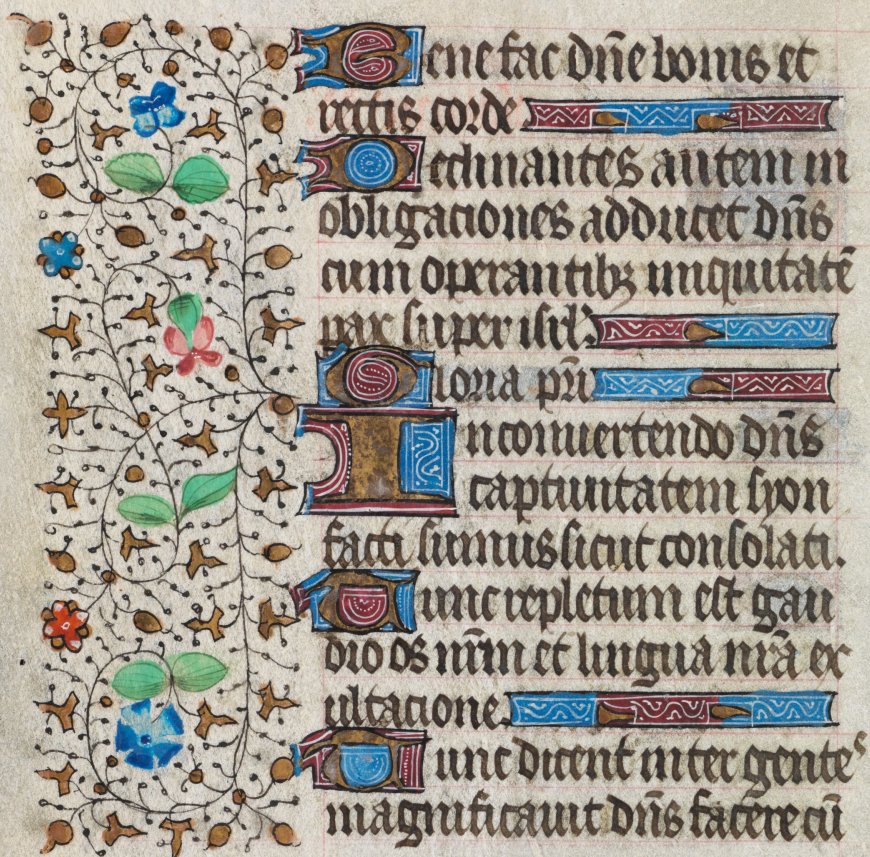 Bene fac dñe bonis et
rectis corde
Declinantes autem in
obligationes adducet dñs
cum operantibꝫ iniquitatē
pax super isrl.
Gloria pr̄i
In conuertendo dñs
captiuitatem syon
facti sumus sicut consolati.
Tunc repletum est gau
dio os nr̄m et lingua nr̄a ex
ultacione.
Tunc dicent inter gentes
magnificauit dñs facere cū